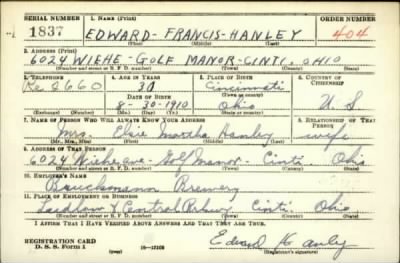 SERIAL NUMBER 1. NAME (Print) ORDER NUMBER
1837 EDWARD - FRANCIS - HANLEY 404
(First) (Middle) (Last)
2. ADDRESS (Print)
6024 WIEHE - GOLF MANOR - CINTI, OHIO
(Number and street or R. F. D. number) (Town) (County) (State)
3. TELEPHONE 4. AGE IN YEARS 5. PLACE OF BIRTH 6. COUNTRY OF CITIZENSHIP
Re 2660 30 Cincinnati
DATE OF BIRTH (Town or county)
8 - 30 - 1910 Ohio U S
(Exchange) (Number) (Mo.) (Day) (Yr.) (State or country)
7. NAME OF PERSON WHO WILL ALWAYS KNOW YOUR ADDRESS 8. RELATIONSHIP OF THAT PERSON
Mrs. Elsie Martha Hanley wife
(Mr., Mrs., Miss) (First) (Middle) (Last)
9. ADDRESS OF THAT PERSON
6024 Wiehe ave - Golf Manor - Cinti. Ohio
(Number and street or R. F. D. number) (Town) (County) (State)
10. EMPLOYER'S NAME
Bruckmann Brewery
11. PLACE OF EMPLOYMENT OR BUSINESS
Ludlow & Central Prkwy Cinti. Ohio
(Number and street or R. F. D. number) (Town) (County) (State)
I AFFIRM THAT I HAVE VERIFIED ABOVE ANSWERS AND THAT THEY ARE TRUE.
REGISTRATION CARD
D. S. S. Form 1 (over) Edward Hanley
(Registrant's signature)